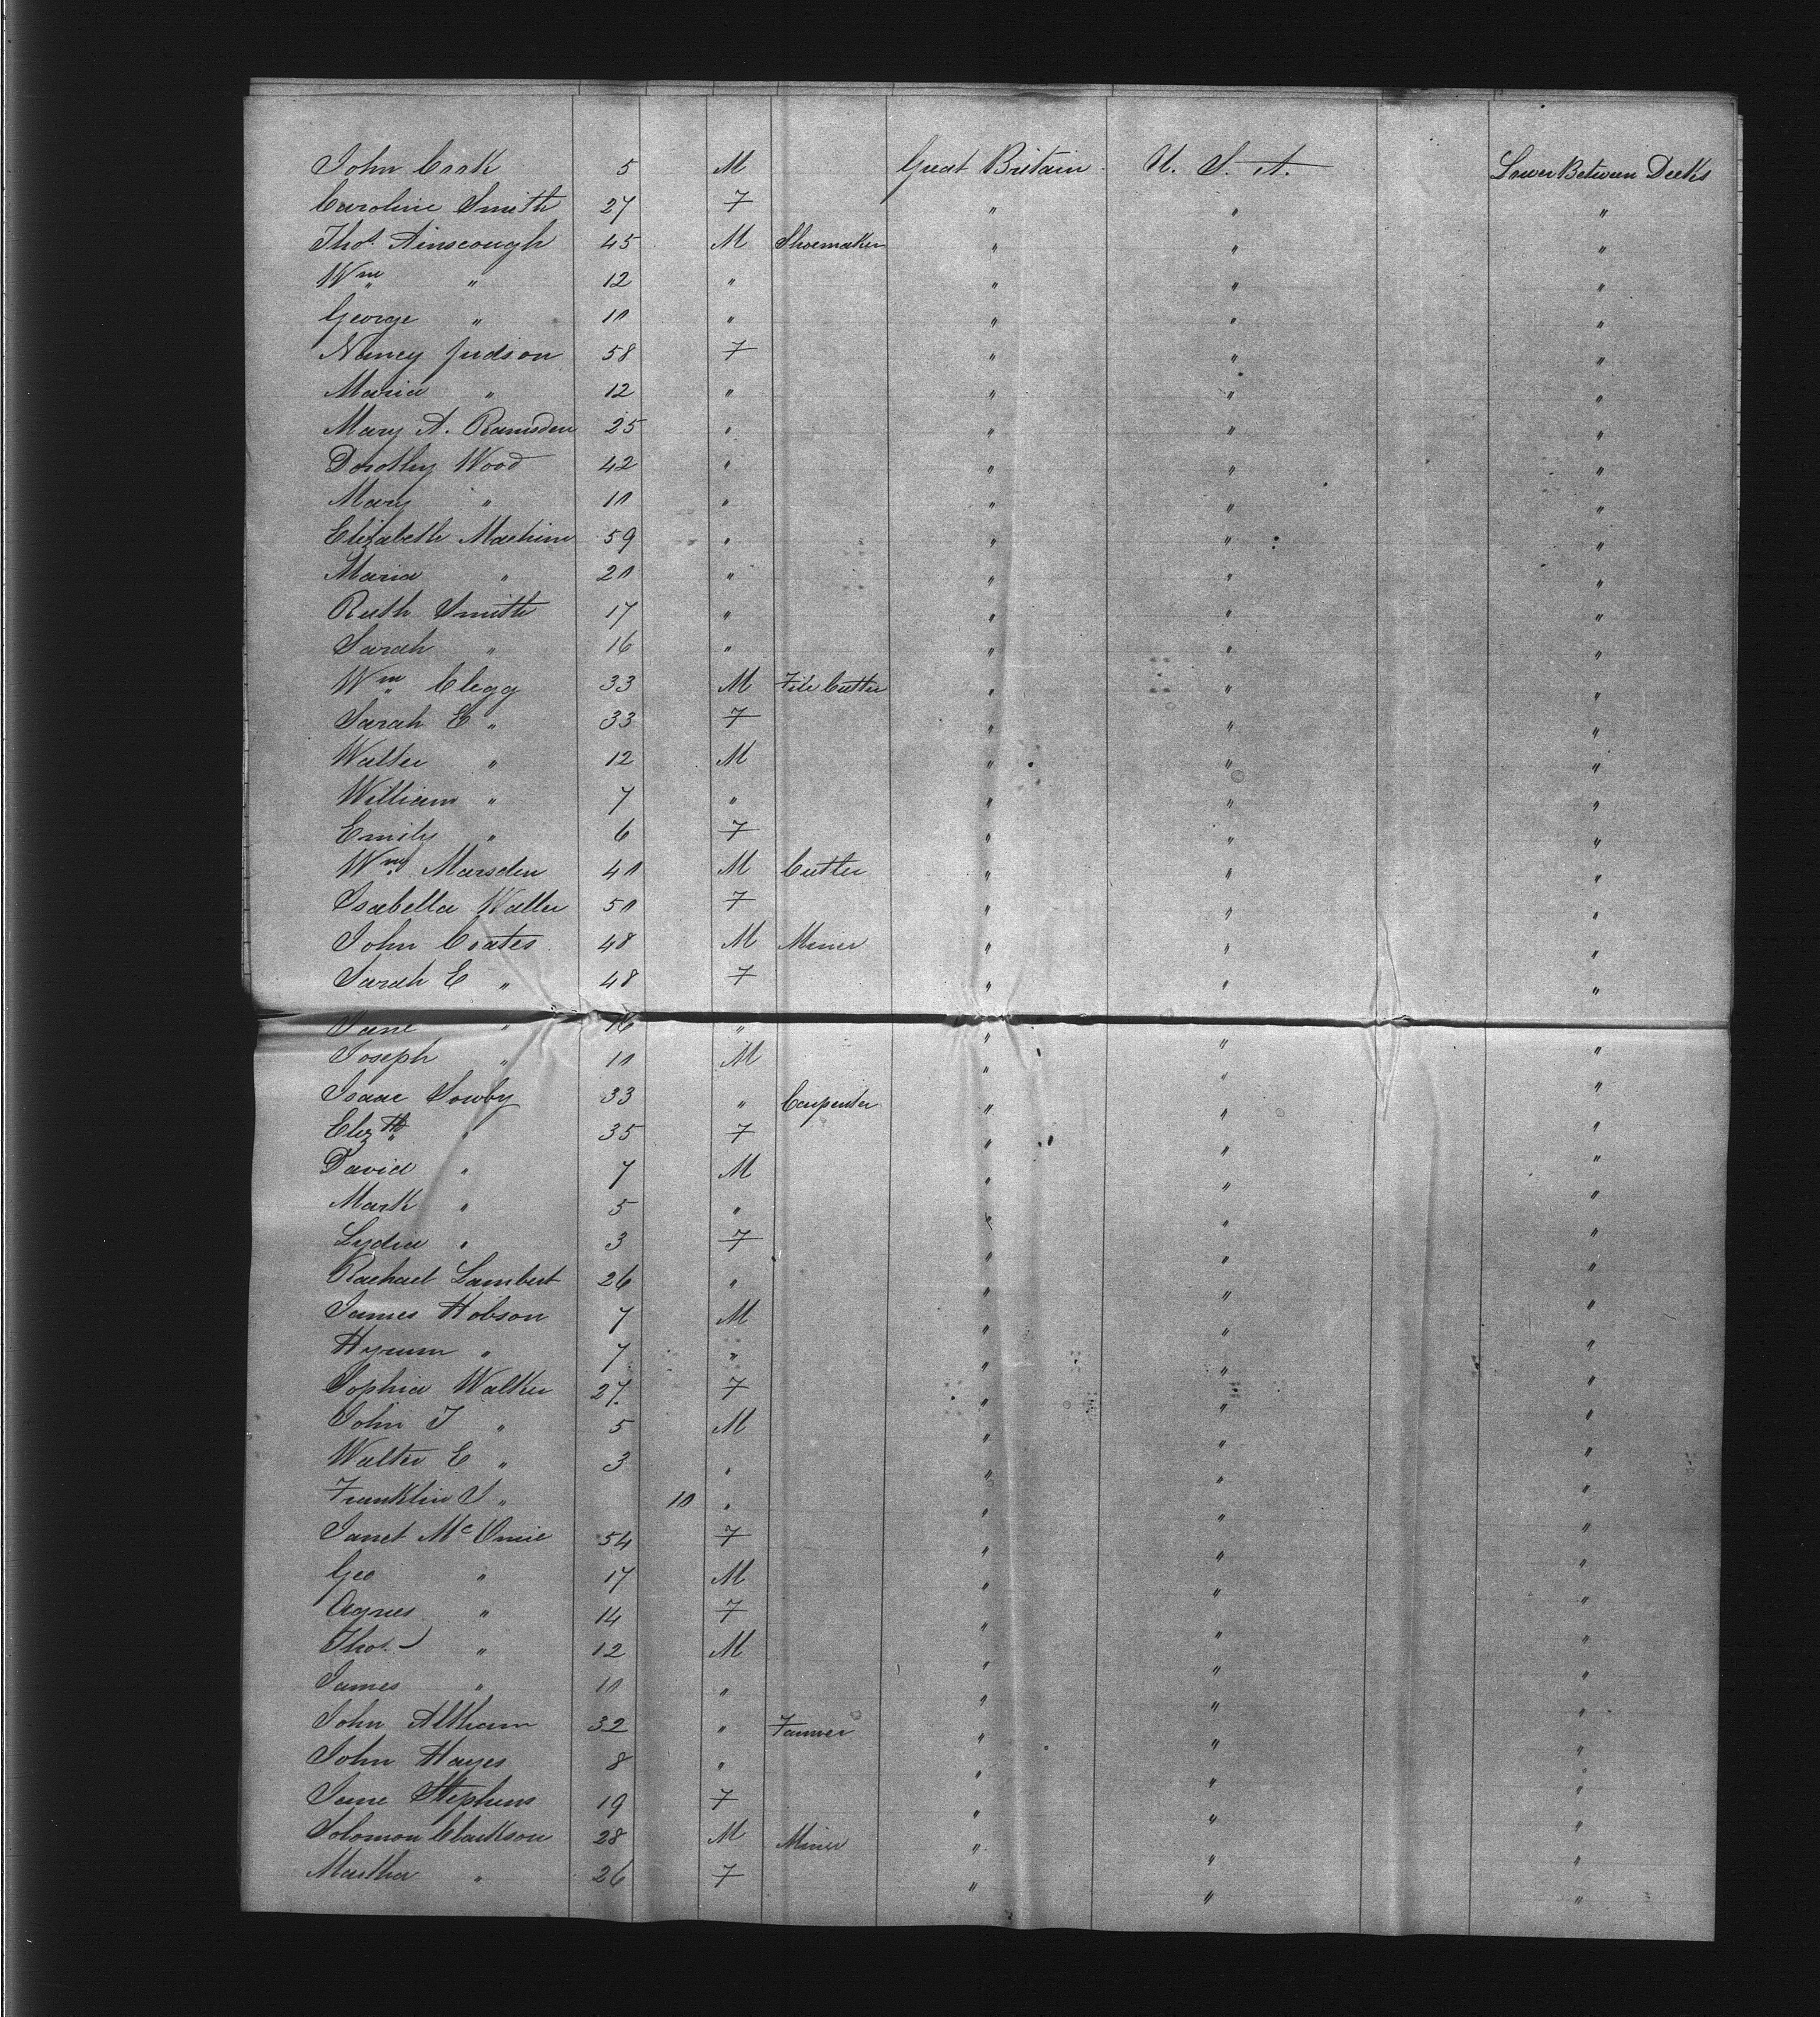 John Cook 5 M Great Britain U. S. A. Lower Between Decks
Caroline Smith 27 F " " "
Thos. Ainscough 45 M Shoemaker " " "
Wm " 12 " " " "
George " 10 " " " "
Nancy Judson 58 F " " "
Maria " 12 " " " "
Mary A. Ramsden 25 " " " "
Dorothy Wood 42 " " " "
Mary " 10 " " " "
Elizabeth Machim 59 " " " "
Maria " 20 " " " "
Ruth Smith 17 " " " "
Sarah " 16 " " " "
Wm Clegg 33 M File Cutter " " "
Sarah E " 33 F " " "
Walter " 12 M " " "
William " 7 " " " "
Emily " 6 F " " "
Wm Marsden 40 M Cutler " " "
Isabella Walter 50 F " " "
John Coates 48 M Miner " " "
Sarah E " 48 F " " "
Jane " 16 " " " "
Joseph " 10 M " " "
Isaac Sowby 33 " Carpenter " " "
Elizth " 35 F " " "
David " 7 M " " "
Mark " 5 " " " "
Lydia " 3 F " " "
Rachael Lambert 26 " " " "
James Hobson 7 M " " "
Hyrum " 7 " " " "
Sophia Walker 27 F " " "
John T " 5 M " " "
Walter E " 3 " " " "
Franklin S " 10 " " " "
Janet McOmie 54 F " " "
Geo " 17 M " " "
Agnes " 14 F " " "
Thos. " 12 M " " "
James " 10 " " " "
John Altham 32 " Farmer " " "
John Hayes 8 " " " "
Jane Stephens 19 F " " "
Solomon Clarkson 28 M Miner " " "
Martha " 26 F " " "